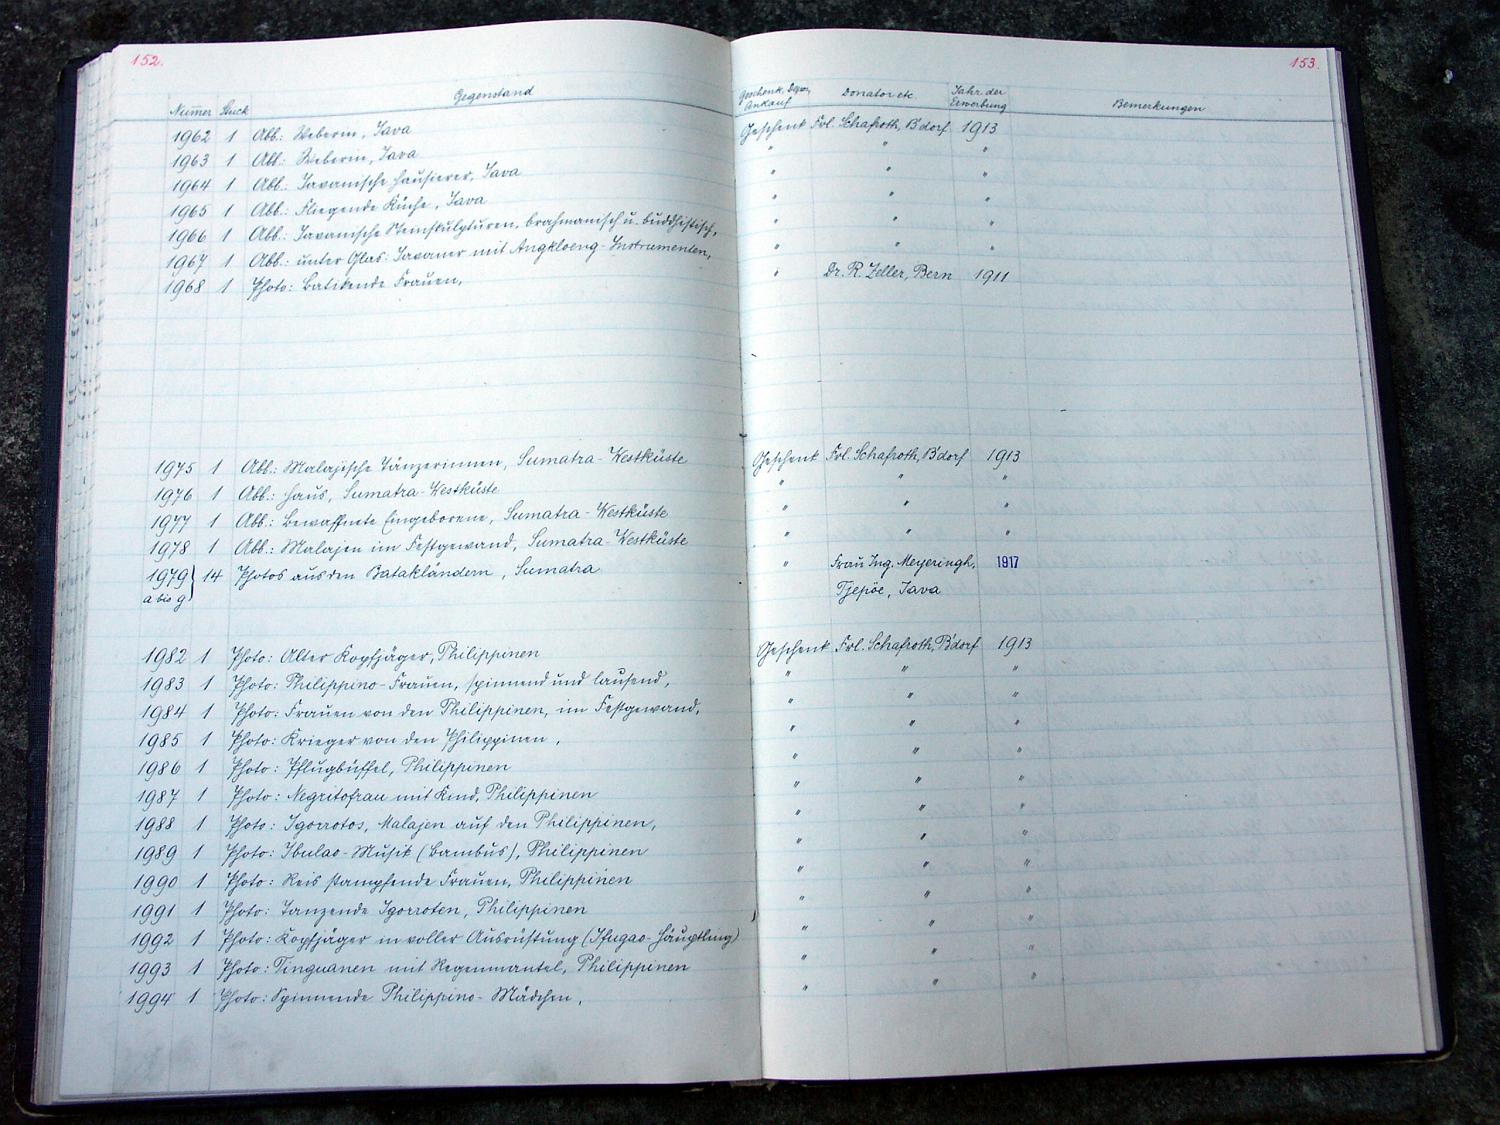 152.
153.
Numer Stück Gegenstand Geschenk, bzw. Ankauf Donator etc. Jahr der Erwerbung Bemerkungen
1962 1 Abb.: Weberin, Java Geschenk Frl. Schafroth, B'dorf 1913
1963 1 Abb.: Weberin, Java " " "
1964 1 Abb.: Javanische Hausierer, Java " " "
1965 1 Abb.: Fliegende Küche, Java " " "
1966 1 Abb.: Javanische Steinskulpturen, brahmanisch u. buddhistisch, " " "
1967 1 Abb.: unter Glas: Javaner mit Angkloeng-Instrumenten, " " "
1968 1 Photo: Batikende Frauen, " Dr. R. Zeller, Bern 1911
1975 1 Abb.: Malajische Tänzerinnen, Sumatra-Westküste Geschenk Frl. Schafroth, B'dorf 1913
1976 1 Abb.: Haus, Sumatra-Westküste " " "
1977 1 Abb.: Bewaffnete Eingeborene, Sumatra-Westküste " " "
1978 1 Abb.: Malajen im Festgewand, Sumatra-Westküste " " "
1979 14 Photos aus den Batakländern, Sumatra " Frau Ing. Meyeringh, 1917
a bis g Tjepöe, Java
1982 1 Photo: Alter Kopfjäger, Philippinen Geschenk Frl. Schafroth, B'dorf 1913
1983 1 Photo: Philippino-Frauen, spinnend und lausend, " " "
1984 1 Photo: Frauen von den Philippinen, im Festgewand, " " "
1985 1 Photo: Krieger von den Philippinen, " " "
1986 1 Photo: Pflugbüffel, Philippinen " " "
1987 1 Photo: Negritofrau mit Kind, Philippinen " " "
1988 1 Photo: Igorrotos, Malajen auf den Philippinen, " " "
1989 1 Photo: Ibulao-Musik (Bambus), Philippinen " " "
1990 1 Photo: Reis stampfende Frauen, Philippinen " " "
1991 1 Photo: Tanzende Igorroten, Philippinen " " "
1992 1 Photo: Kopfjäger in voller Ausrüstung (Ifugao-Häuptling) " " "
1993 1 Photo: Tinguanen mit Regenmantel, Philippinen " " "
1994 1 Photo: Spinnende Philippino-Mädchen, " " "